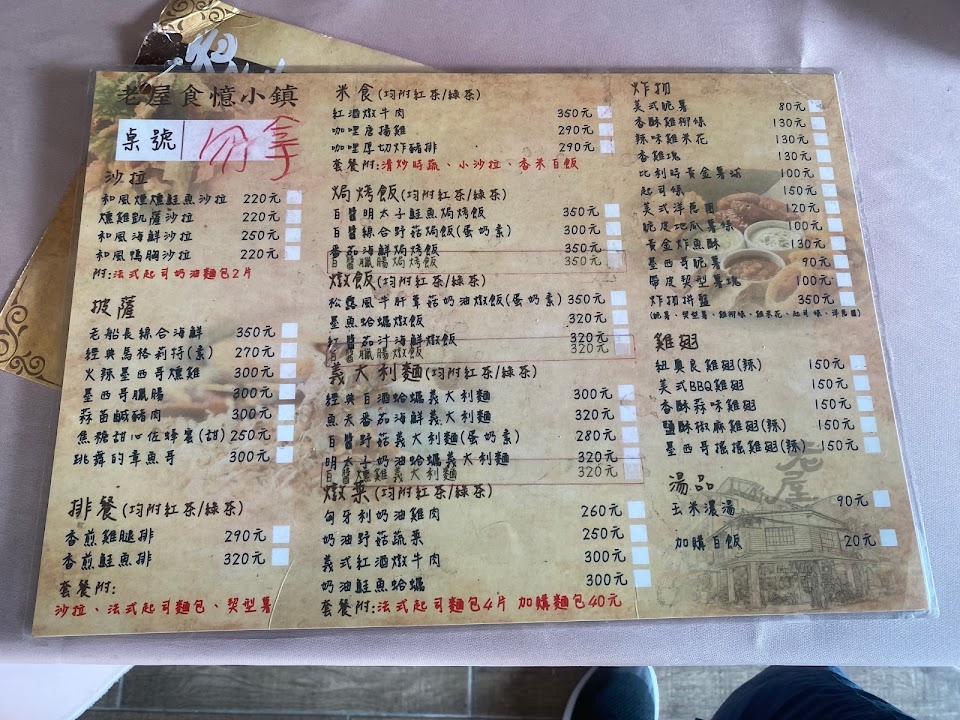 老屋食憶小鎮
桌號
外拿
沙拉
和風燻燻鮭魚沙拉 220元
燻雞凱薩沙拉 220元
和風海鮮沙拉 250元
和風鴨胸沙拉 220元
附:法式起司奶油麵包2片
披薩
老船長綜合海鮮 350元
經典馬格莉特(素) 270元
火辣墨西哥燻雞 300元
墨西哥臘腸 300元
蒜苗鹹豬肉 300元
焦糖甜心佐蜂蜜(甜) 250元
跳舞的章魚哥 300元
排餐(均附紅茶/綠茶)
香煎雞腿排 290元
香煎鮭魚排 320元
套餐附:
沙拉、法式起司麵包、契型薯
米食(均附紅茶/綠茶)
紅酒燉牛肉 350元
咖哩唐揚雞 290元
咖哩厚切炸豬排 290元
套餐附:清炒時蔬、小沙拉、香米白飯
焗烤飯(均附紅茶/綠茶)
白醬明太子鮭魚焗烤飯 350元
白醬綜合野菇焗飯(蛋奶素) 300元
番茄海鮮焗烤飯 350元
白醬臘腸焗烤飯 350元
燉飯(均附紅茶/綠茶)
松露風牛肝蕈菇奶油燉飯(蛋奶素) 350元
墨魚蛤蠣燉飯 320元
紅醬茄汁海鮮燉飯 320元
白醬臘腸燉飯 320元
義大利麵(均附紅茶/綠茶)
經典白酒蛤蠣義大利麵 300元
魚夫番茄海鮮義大利麵 320元
白醬野菇義大利麵(蛋奶素) 280元
明太子奶油蛤蠣義大利麵 320元
白醬燻雞義大利麵 320元
燉菜(均附紅茶/綠茶)
匈牙利奶油雞肉 260元
奶油野菇蔬菜 250元
義式紅酒燉牛肉 300元
奶油鮭魚蛤蠣 300元
套餐附:法式起司麵包4片 加購麵包40元
炸物
美式脆薯 80元
香酥雞柳條 130元
辣味雞米花 130元
香雞塊 130元
比利時黃金薯球 100元
起司條 150元
美式洋蔥圈 120元
脆皮地瓜薯條 100元
黃金炸魚酥 130元
墨西哥脆薯 90元
帶皮契型薯塊 100元
炸物拼盤 350元
(脆薯、契型薯、雞柳條、雞米花、起司條、洋蔥圈)
雞翅
紐奧良雞翅(辣) 150元
美式BBQ雞翅 150元
香酥蒜味雞翅 150元
鹽酥椒麻雞翅(辣) 150元
墨西哥搖搖雞翅(辣) 150元
老屋
湯品
玉米濃湯 90元
加購白飯 20元